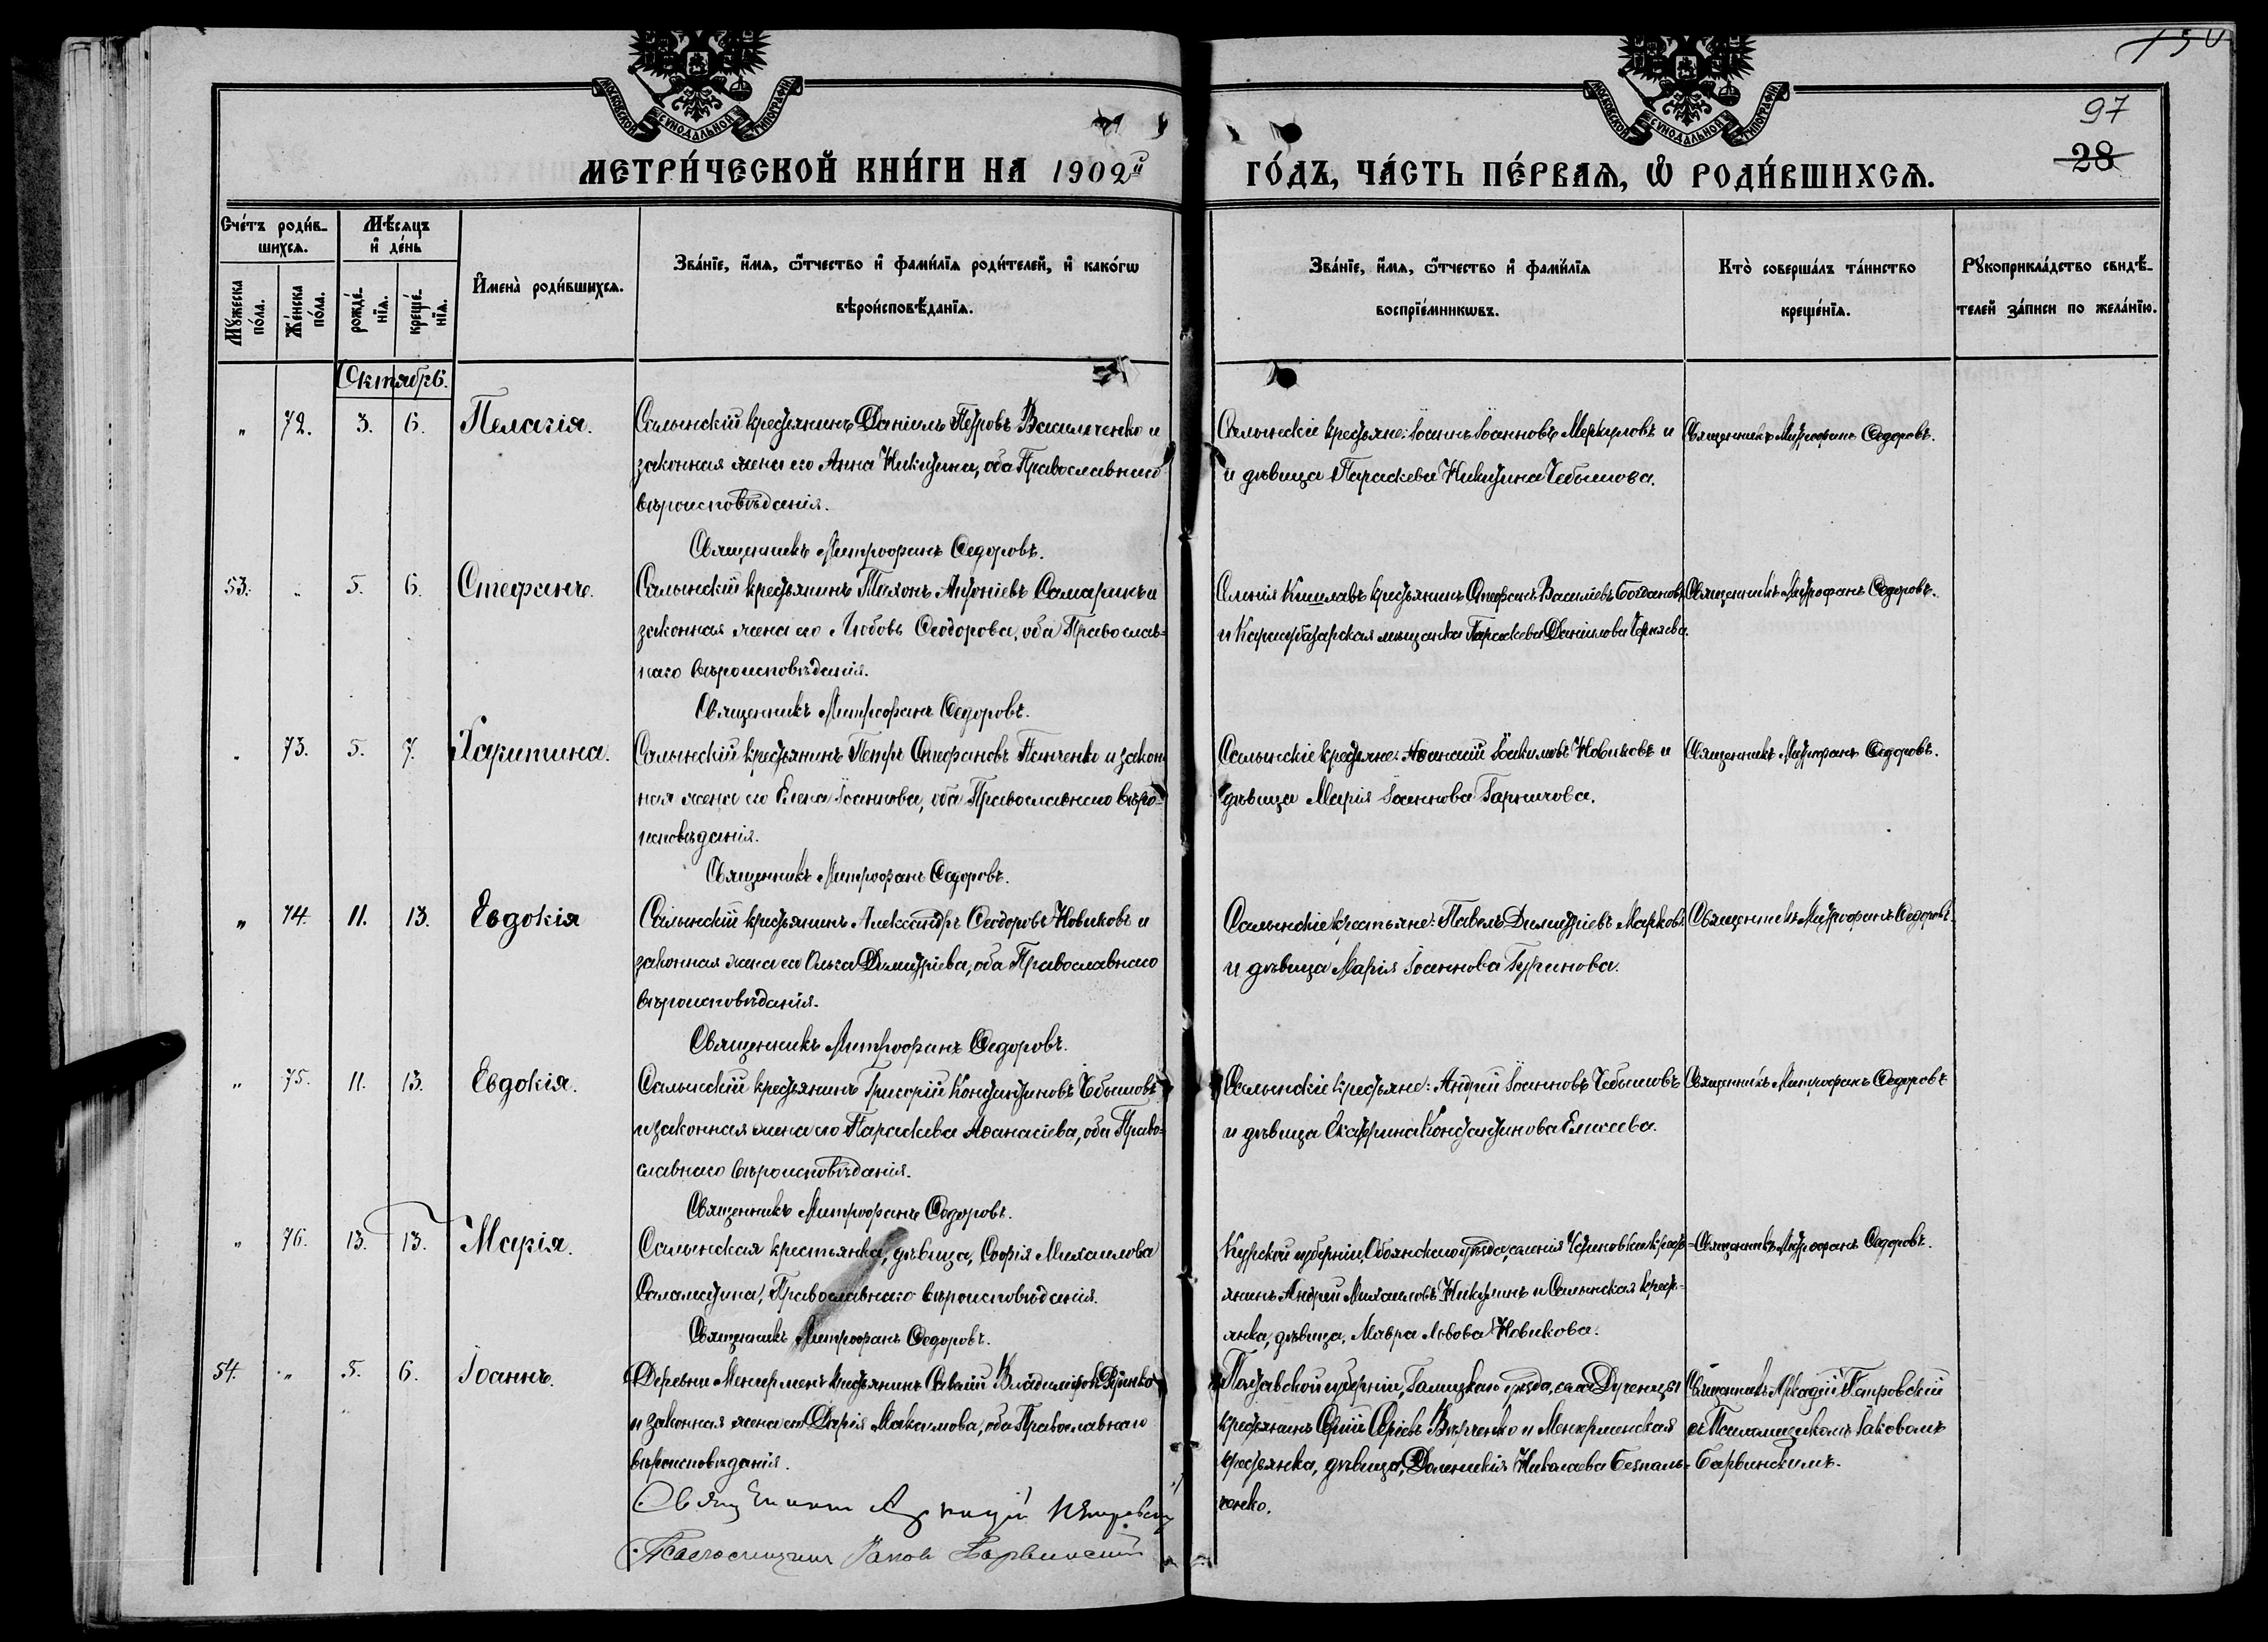 150
97
28
МОСКОВСКОЙ СѴНОДАЛЬНОЙ ТИПОГРАФІИ
МОСКОВСКОЙ СѴНОДАЛЬНОЙ ТИПОГРАФІИ
МЕТРИ́ЧЕСКОЙ КНИ́ГИ НА 1902й
ГО́ДЪ, ЧА́СТЬ ПЕ́РВАѦ, Ѡ҆ РОДИ́ВШИХСѦ.
Сче́тъ роди́в-
шихсѧ.
Мѣ́сѧцъ
и҆ де́нь
Мꙋ́жеска
по́ла.
Же́нска
по́ла.
рожде́-
нїѧ.
креще́-
нїѧ.
И҆мена̀ роди́вшихсѧ.
Зва́нїе, и҆́мѧ, ѻ҆́тчество и҆ фами́лїѧ роди́телей, и҆ како́гѡ
вѣроисповѣ́данїѧ.
Зва́нїе, и҆́мѧ, ѻ҆́тчество и҆ фами́лїѧ
воспрїе́мникѡвъ.
Кто̀ соверша́лъ та́инство
креще́нїѧ.
Рꙋкоприкла́дство свидѣ́-
телей за́писи по жела́нїю.
Октябрь.
" 72. 3. 6. Пелагія.
Салынскій крестьянинъ Даніилъ Петровъ Васильченко и
законная жена его Анна Никитина, оба Православнаго
вѣроисповѣданія.
Священникъ Митрофанъ Ѳедоровъ.
Салынскіе крестьяне: Іоаннъ Іоанновъ Меркуловъ и
и дѣвица Параскева Никитина Чебышова.
Священникъ Митрофанъ Ѳедоровъ.
53. " 5. 6. Стефанъ.
Салынскій крестьянинъ Тихонъ Антоніевъ Самаринъ и
законная жена его Любовь Ѳеодорова, оба Православ-
наго вѣроисповѣданія.
Священникъ Митрофанъ Ѳедоровъ.
Селенія Кишлавъ крестьянинъ Стефанъ Васильевъ Богдановъ
и Карасубазарская мѣщанка Параскева Данилова
Священникъ Митрофанъ Ѳедоровъ.
" 73. 5. 7. Харитина.
Салынскій крестьянинъ Петръ Стефановъ Панченко и закон-
ная жена его Елена Іоаннова, оба Православнаго вѣро-
исповѣданія.
Священникъ Митрофанъ Ѳедоровъ.
Салынскіе крестьяне: Аѳанасій Іоакимовъ Новиковъ и
дѣвица Марія Іоаннова
Священникъ Митрофанъ Ѳедоровъ.
" 74. 11. 13. Евдокія
Салынскій крестьянинъ Александръ Ѳеодоровъ Новиковъ и
законная жена его Ольга Димитріева, оба Православнаго
вѣроисповѣданія.
Священникъ Митрофанъ Ѳедоровъ.
Салынскіе крестьяне: Павелъ Димитріевъ Марковъ
и дѣвица Марія Іоаннова Гуринова.
Священникъ Митрофанъ Ѳедоровъ.
" 75. 11. 13. Евдокія.
Салынскій крестьянинъ Григорій Константиновъ Чебышовъ
и законная жена его Параскева Аѳанасіева, оба Право-
славнаго вѣроисповѣданія.
Священникъ Митрофанъ Ѳедоровъ.
Салынскіе крестьяне: Андрей Іоанновъ Чебышовъ
и дѣвица Екатерина Константинова Елисеева.
Священникъ Митрофанъ Ѳедоровъ
" 76. 13. 13. Марія.
Салынская крестьянка, дѣвица, Софія Михаилова
Саламатина, Православнаго вѣроисповѣданія.
Священникъ Митрофанъ Ѳедоровъ.
Курской губерніи, Обоянскаго уѣзда, селенія кресть-
янинъ Андрей Михаиловъ Никулинъ и Салынская кресть-
янка, дѣвица, Мавра Львова Новикова.
Священникъ Митрофанъ Ѳедоровъ.
54. " 5. 6. Іоаннъ.
Деревни Менгерменъ крестьянинъ Савелій Владиміровъ
и законная жена его Дарія Максимова, оба Православнаго
вѣроисповѣданія.
Священникъ Аркадій Петровскій
Псаломщикъ Іаковъ Барвинскій
Полтавской губерніи, уѣзда, села
крестьянинъ Сергій Сергіевъ и Менгерменская
крестьянка, дѣвица, Доминикія Николаева Безпаль-
ченко.
Священникъ Аркадій Петровскій
съ Псаломщикомъ Іаковомъ
Барвинскимъ.